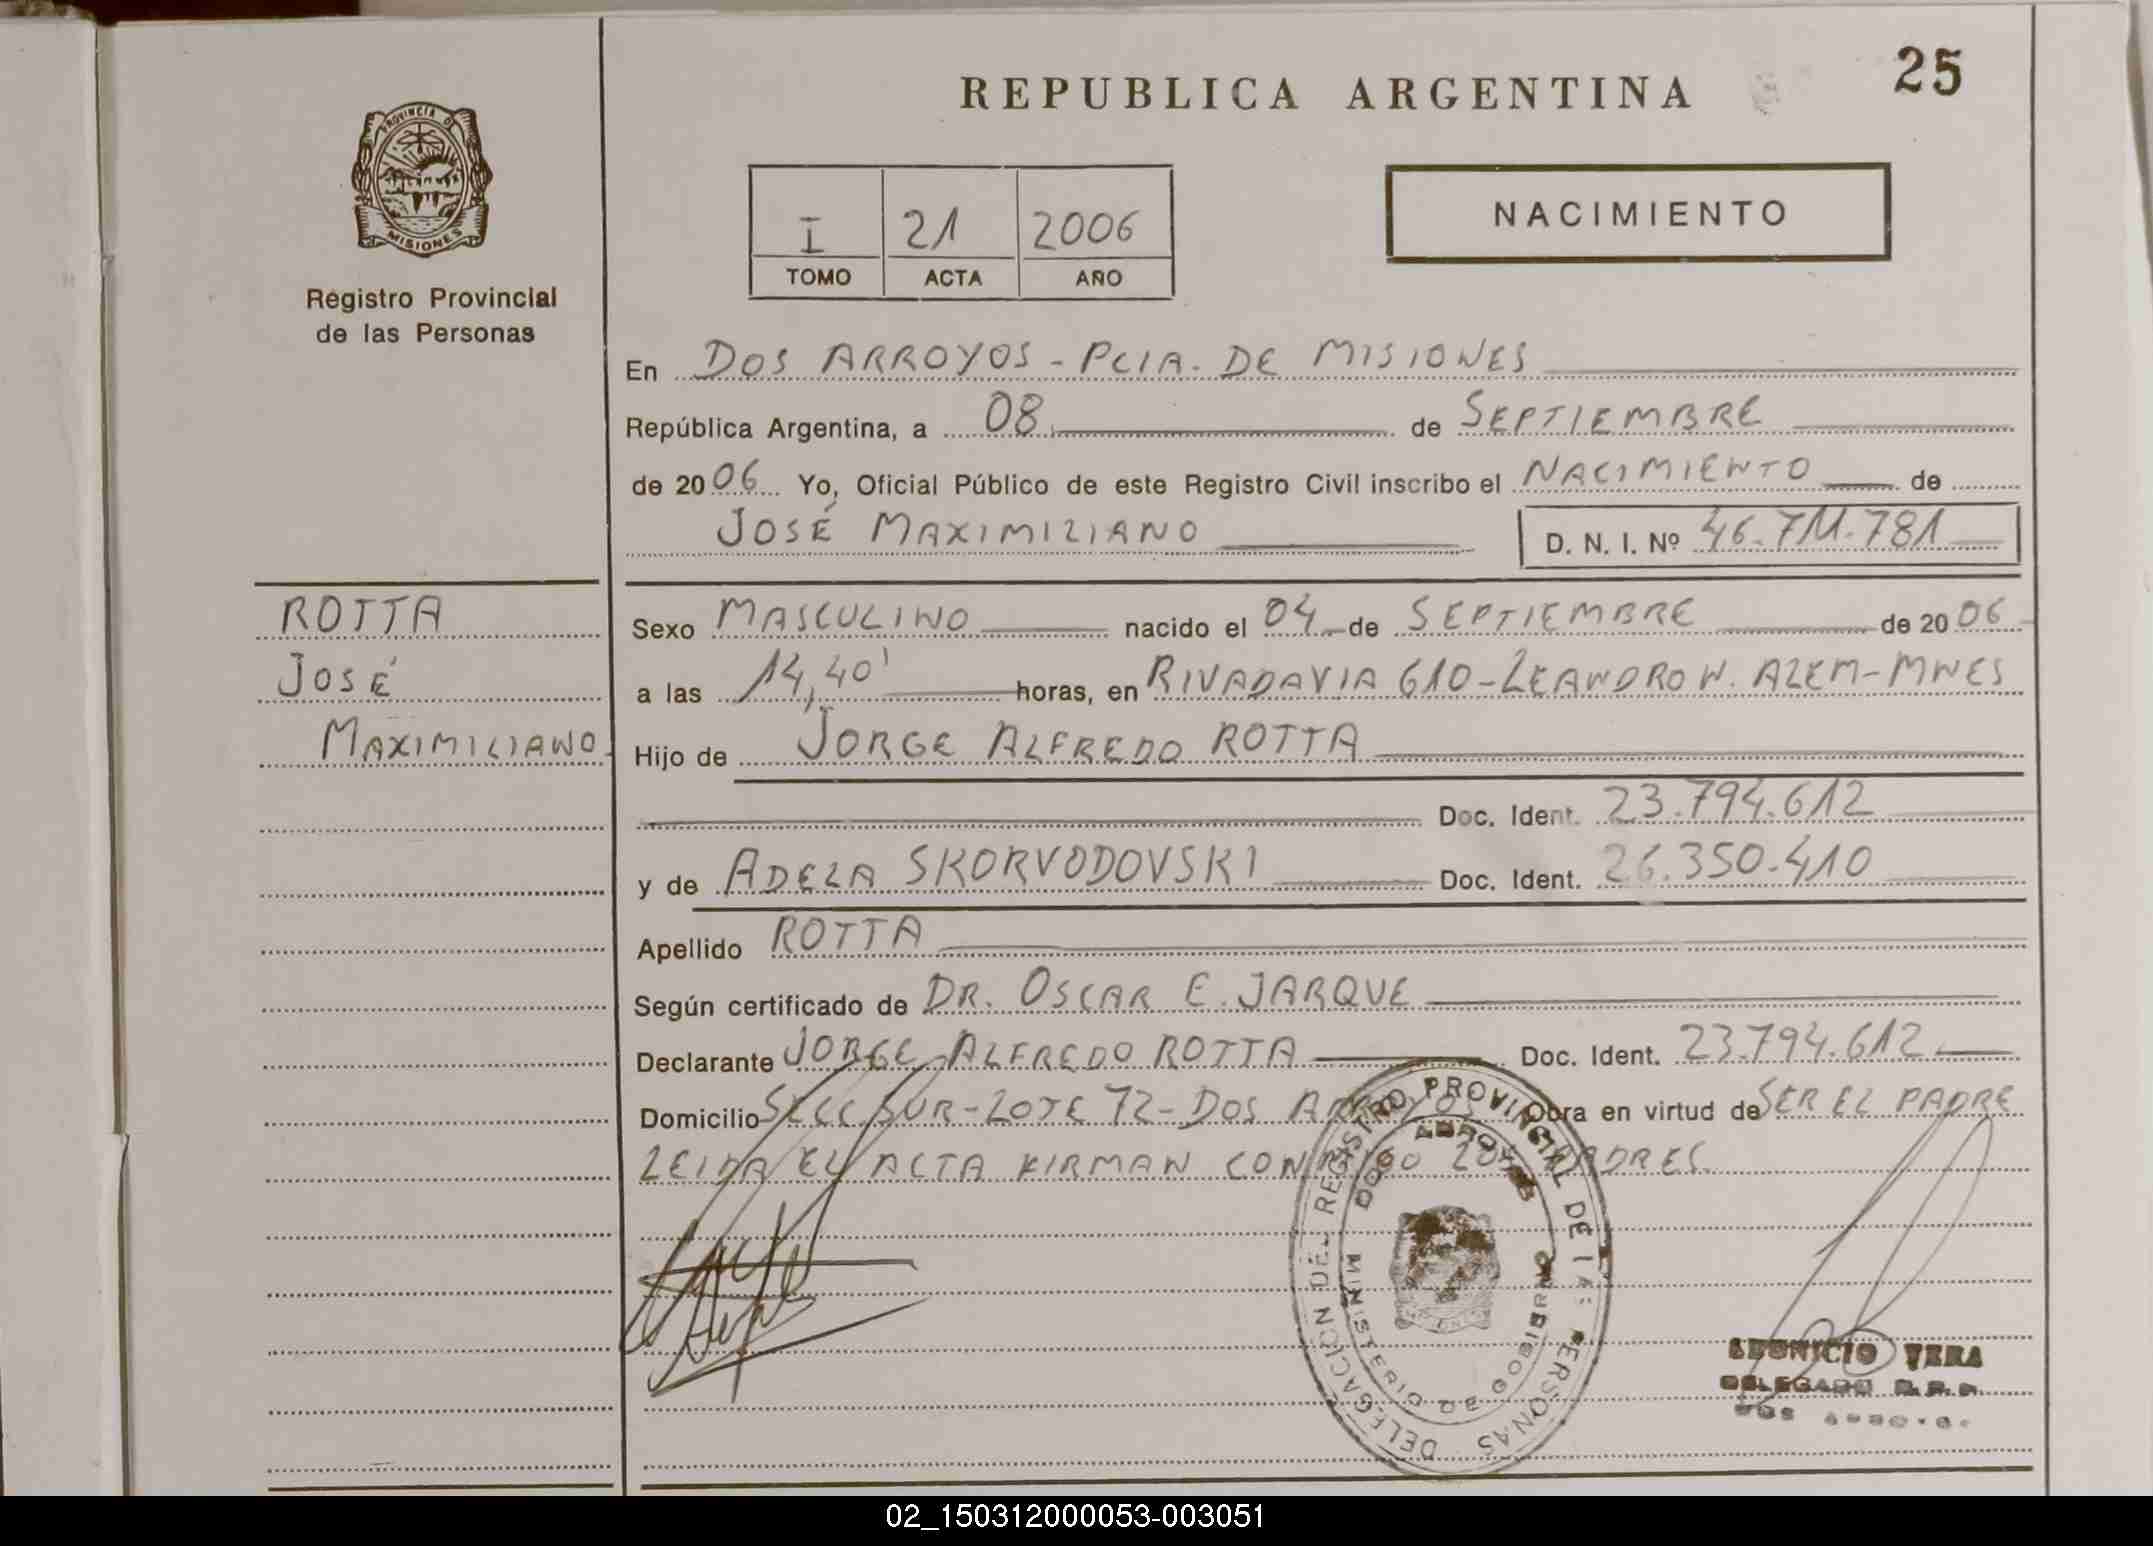 25
REPUBLICA ARGENTINA
PROVINCIA D
MISIONES
Registro Provincial
de las Personas
NACIMIENTO
I 21 2006
TOMO ACTA AÑO
En DOS ARROYOS - PCIA. DE MISIONES
República Argentina, a 08 de SEPTIEMBRE
de 2006 Yo, Oficial Público de este Registro Civil inscribo el NACIMIENTO de
JOSÉ MAXIMILIANO D. N. I. Nº 46.711.781
ROTTA
JOSÉ
MAXIMILIANO
Sexo MASCULINO nacido el 04 de SEPTIEMBRE de 2006
a las 14,40' horas, en RIVADAVIA 610 - LEANDRO N. ALEM - MNES
Hijo de JORGE ALFREDO ROTTA
Doc. Ident. 23.794.612
y de ADELA SKORVODOVSKI Doc. Ident. 26.350.410
Apellido ROTTA
Según certificado de DR. OSCAR E. JARQUE
Declarante JORGE ALFREDO ROTTA Doc. Ident. 23.794.612
Domicilio SECC SUR - LOTE 72 - DOS ARROYOS Obra en virtud de SER EL PADRE
LEIDA EL ACTA FIRMAN CONMIGO LOS PADRES.
DELEGACION DEL REGISTRO PROVINCIAL DE LAS PERSONAS
DOS ARROYOS
MINISTERIO DE GOBIERNO
LEONICIO VERA
DELEGADO R.P.P.
DOS ARROYOS
02_150312000053-003051